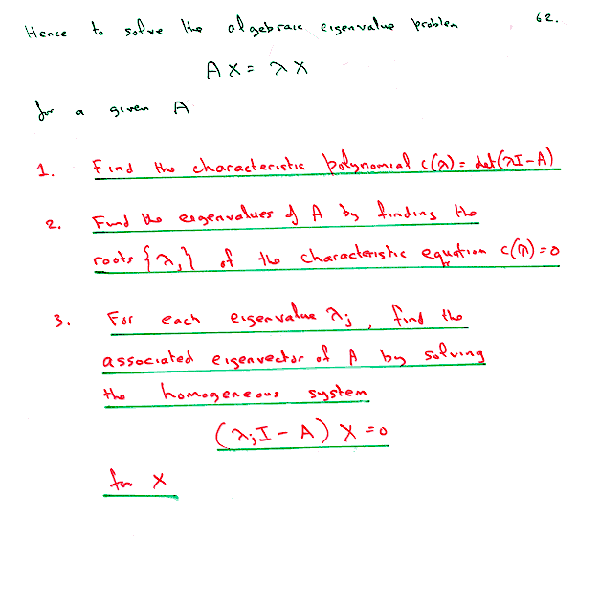 Hence to solve the algebraic eigenvalue problem 62.
AX = λX
for a given A
1. Find the characteristic polynomial c(λ) = det(λI-A)
2. Find the eigenvalues of A by finding the
roots {λj} of the characteristic equation c(λ) = 0
3. For each eigenvalue λj, find the
associated eigenvector of A by solving
the homogeneous system
(λjI - A) X = 0
for X